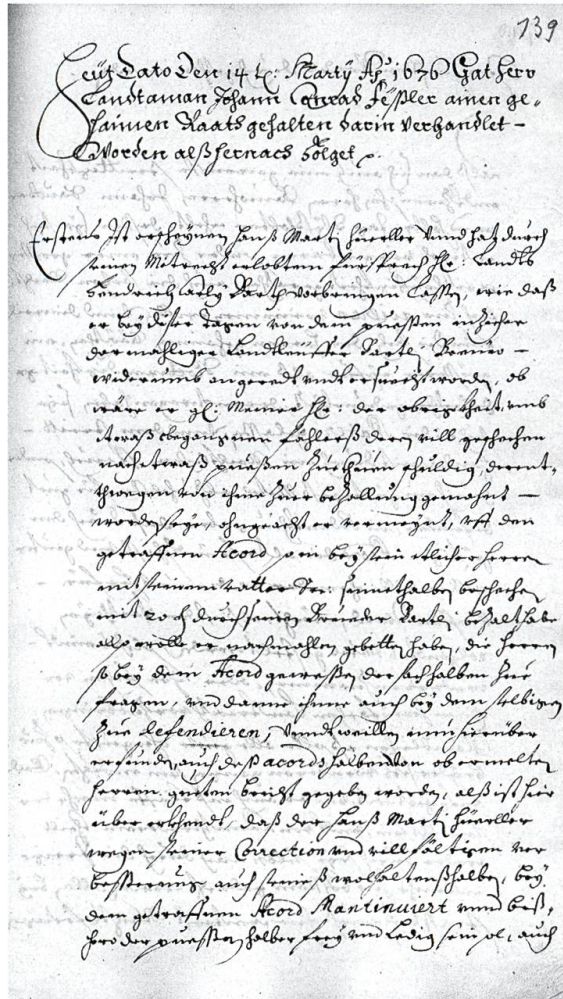 139
Heüt Dato Den 14 t: Marty A:o 1676 Hat herr
Landtaman Johann Conrad Feßler ainen ge-
haimen Raath gehalten darin verhandlet
Worden alß hernach Volget
Erstens Ist erscheynen hanß Marti hüeller vnnd hat durch
seinen Mitrecht erlobtem fürsprech hr: Landts
vorbringen Lassen, wie daß
er bey diser tagen von dem puessen inzieher
dermahligen Landtleüffer Bartle
widerumb angeredt vndt ersuecht worden, ob
wäre er gl: Meine hr: der obrigkheit umb
etwaß begangnen fählerß deren vill geschechen
nach etwaß puessen Zue thuen schuldig, derent-
thwegen von ihme Zuer bezallung gemahnt
worden seye, ohngeacht er vermeynt, vff den
getraffnen Acord, so in beysein etlicher herren
mit seinem vatter See: seinethalben beschechen
mit 20 durch seinen Brueder Bartle bezalt habe
also wölle er nachmahlen gebetten haben, die herren
so bey dem Acord geweßen der sach halben Zue
fragen, vnd danne ihnne auch bey dem selbigen
Zue defendieren, vnndt weillen nun hierüber
erfunden, auch deß acords halben von ob ermelten
herren gueten bericht gegeben worden, alß ist hier
über erkhendt, daß der hanß Marti hüeller
wegen seiner Correction vnd villfältigen ver
besserung auch seineß wolhaltenß halben, bey
dem getraffnen Acord Mantinuiert vnnd biß-
hero der puessen halber frey vnd Ledig sein sol, auch